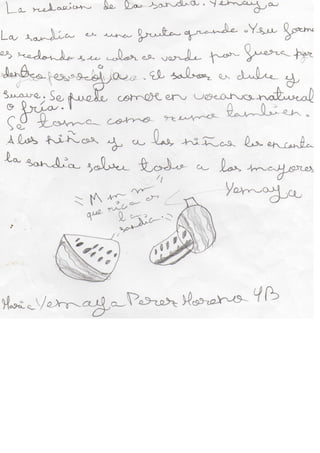 La redacion de la sandia. Yemaya
La sandia es una fruta grande. Y su forma
es redonda su color es verde por fuera por
dentro es roja. El sabor es dulce y
suave; Se puede comer en verano natural
o fria.
Se toma como zumo tambien.
A los niños y a las niñas les encanta
la sandia sobre todo a los mayores
Yemaya
Mmm
que rica es
la
sandia
Maria Yemaya Perez Moreno 4B